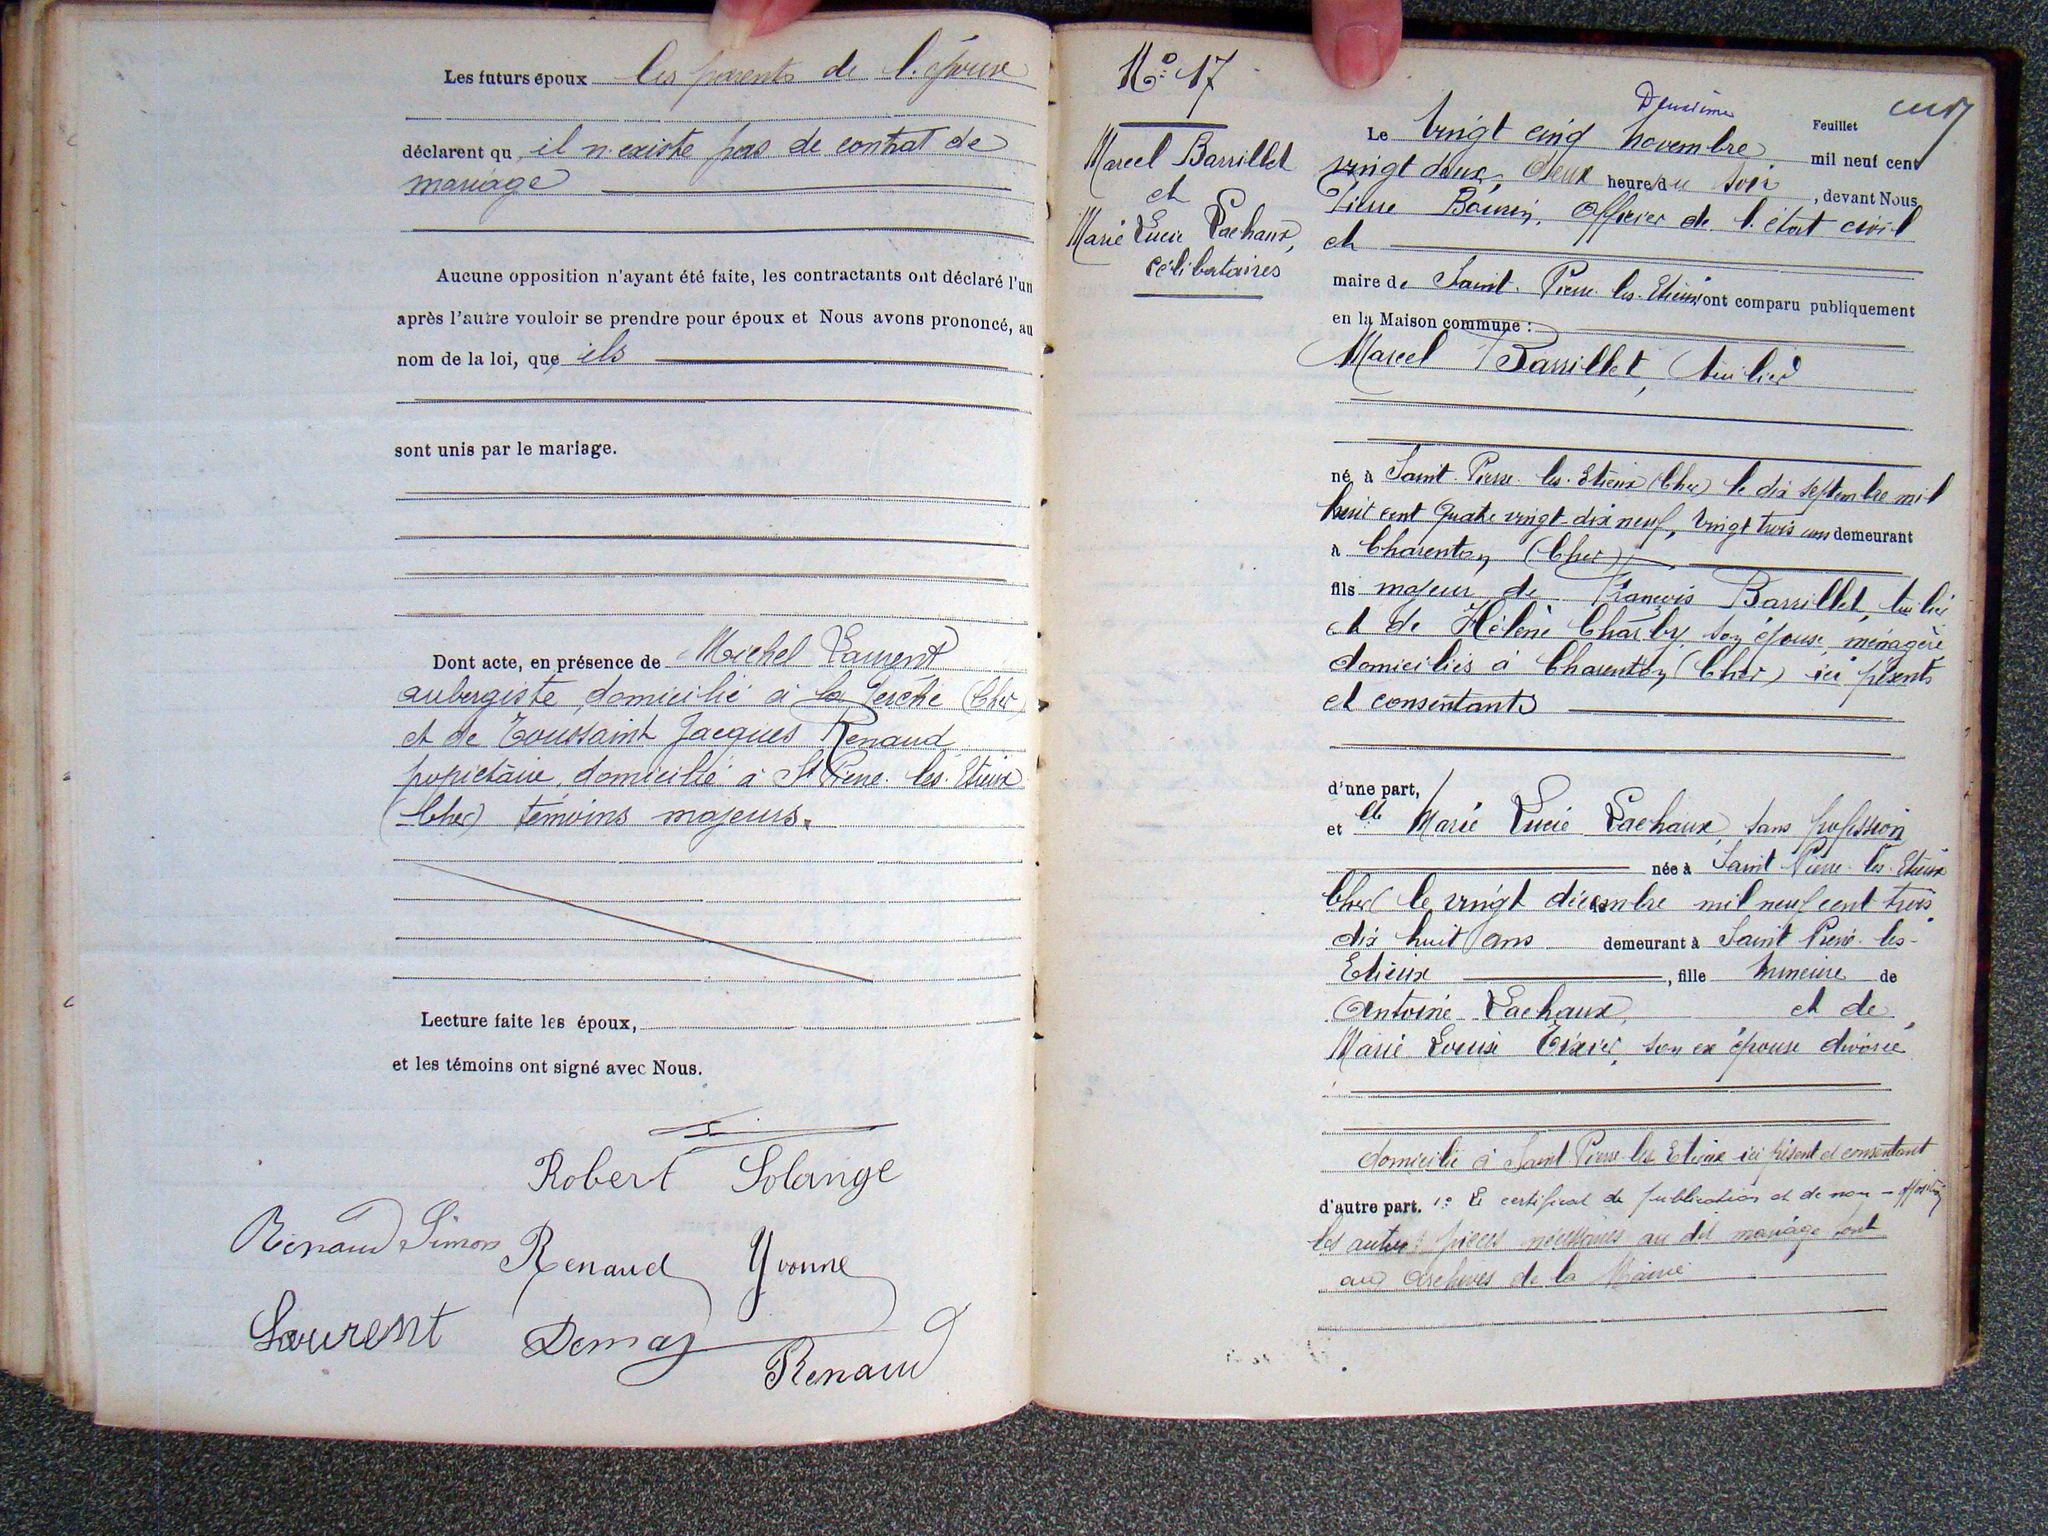 Les futurs époux les parents de l'épouse
déclarent qu'il n'existe pas de contrat de
mariage
Aucune opposition n'ayant été faite, les contractants ont déclaré l'un
après l'autre vouloir se prendre pour époux et Nous avons prononcé, au
nom de la loi, que ils
sont unis par le mariage.
Dont acte, en présence de Michel Laurent
aubergiste, domicilié à la Perche (Cher)
et de Toussaint Jacques Renaud
propriétaire, domicilié à St Pierre-les-Etieux
(Cher) témoins majeurs.
Lecture faite les époux,
et les témoins ont signé avec Nous.
Robert Solange
Renaud Simon Renaud Yvonne
Laurent Demay
Renaud
No 17
Marcel Barrillet
et
Marie Lucie Lachaux,
célibataires
Deuxième Feuillet
Le vingt cinq novembre mil neuf cent
vingt deux, deux heure du soir, devant Nous
Pierre officier de l'état civil
et
maire de Saint-Pierre-les-Etieux ont comparu publiquement
en la Maison commune :
Marcel Barrillet, tuilier
né à Saint-Pierre-les-Etieux (Cher) le dix septembre mil
huit cent quatre vingt-dix neuf, vingt trois ans demeurant
à Charenton (Cher)
fils majeur de François Barrillet, tuilier
et de Hélène Charby, son épouse, ménagère
domiciliés à Charenton (Cher) ici présents
et consentants
d'une part,
et Elle Marie Lucie Lachaux, sans profession
née à Saint-Pierre-les-Etieux
Cher le vingt décembre mil neuf cent trois
dix huit ans demeurant à Saint Pierre-les-
Etieux, fille mineure de
Antoine Lachaux, et de
Marie Louise Tixier, son ex épouse divorcée
domicilié à Saint-Pierre-les-Etieux ici présent et consentant
d'autre part. 1º Le certificat de publication et de non-opposition
les autres pièces nécessaires au dit mariage sont
aux archives de la Mairie